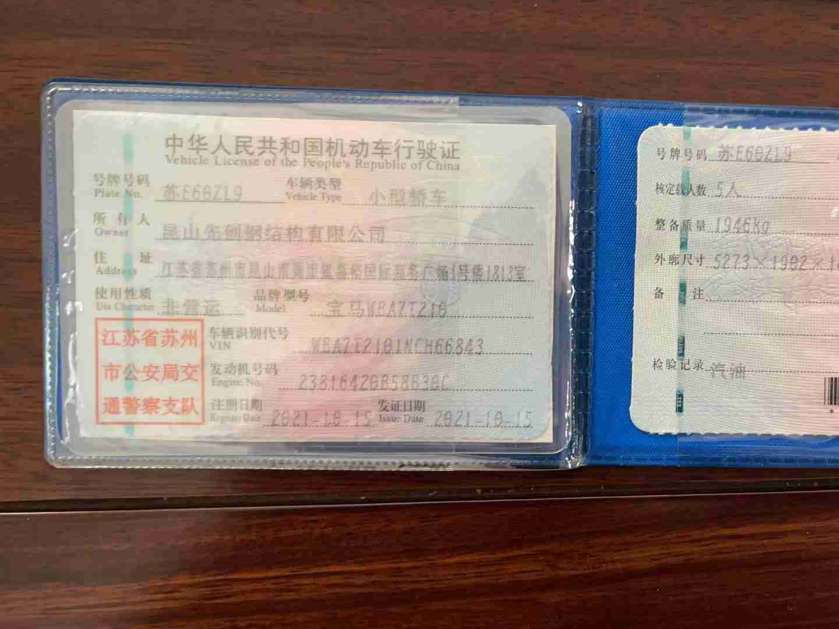 中华人民共和国机动车行驶证
Vehicle License of the People's Republic of China
号牌号码 苏E60ZL9 车辆类型 小型轿车
Plate No. Vehicle Type
所有人 昆山先创钢结构有限公司
Owner
住址 江苏省苏州市昆山市 国际商务广场1号楼1813室
Address
使用性质 非营运 品牌型号 宝马WBA7T210
Use Character Model
江苏省苏州
市公安局交
通警察支队
车辆识别代号 WBA7T2101NCH66843
VIN
发动机号码
Engine No.
注册日期 2021-10-15 发证日期 2021-10-15
Register Date Issue Date
号牌号码 苏E60ZL9
核定载人数 5人
整备质量 1946kg
外廓尺寸 5273×1902×1
备注
检验记录 汽油